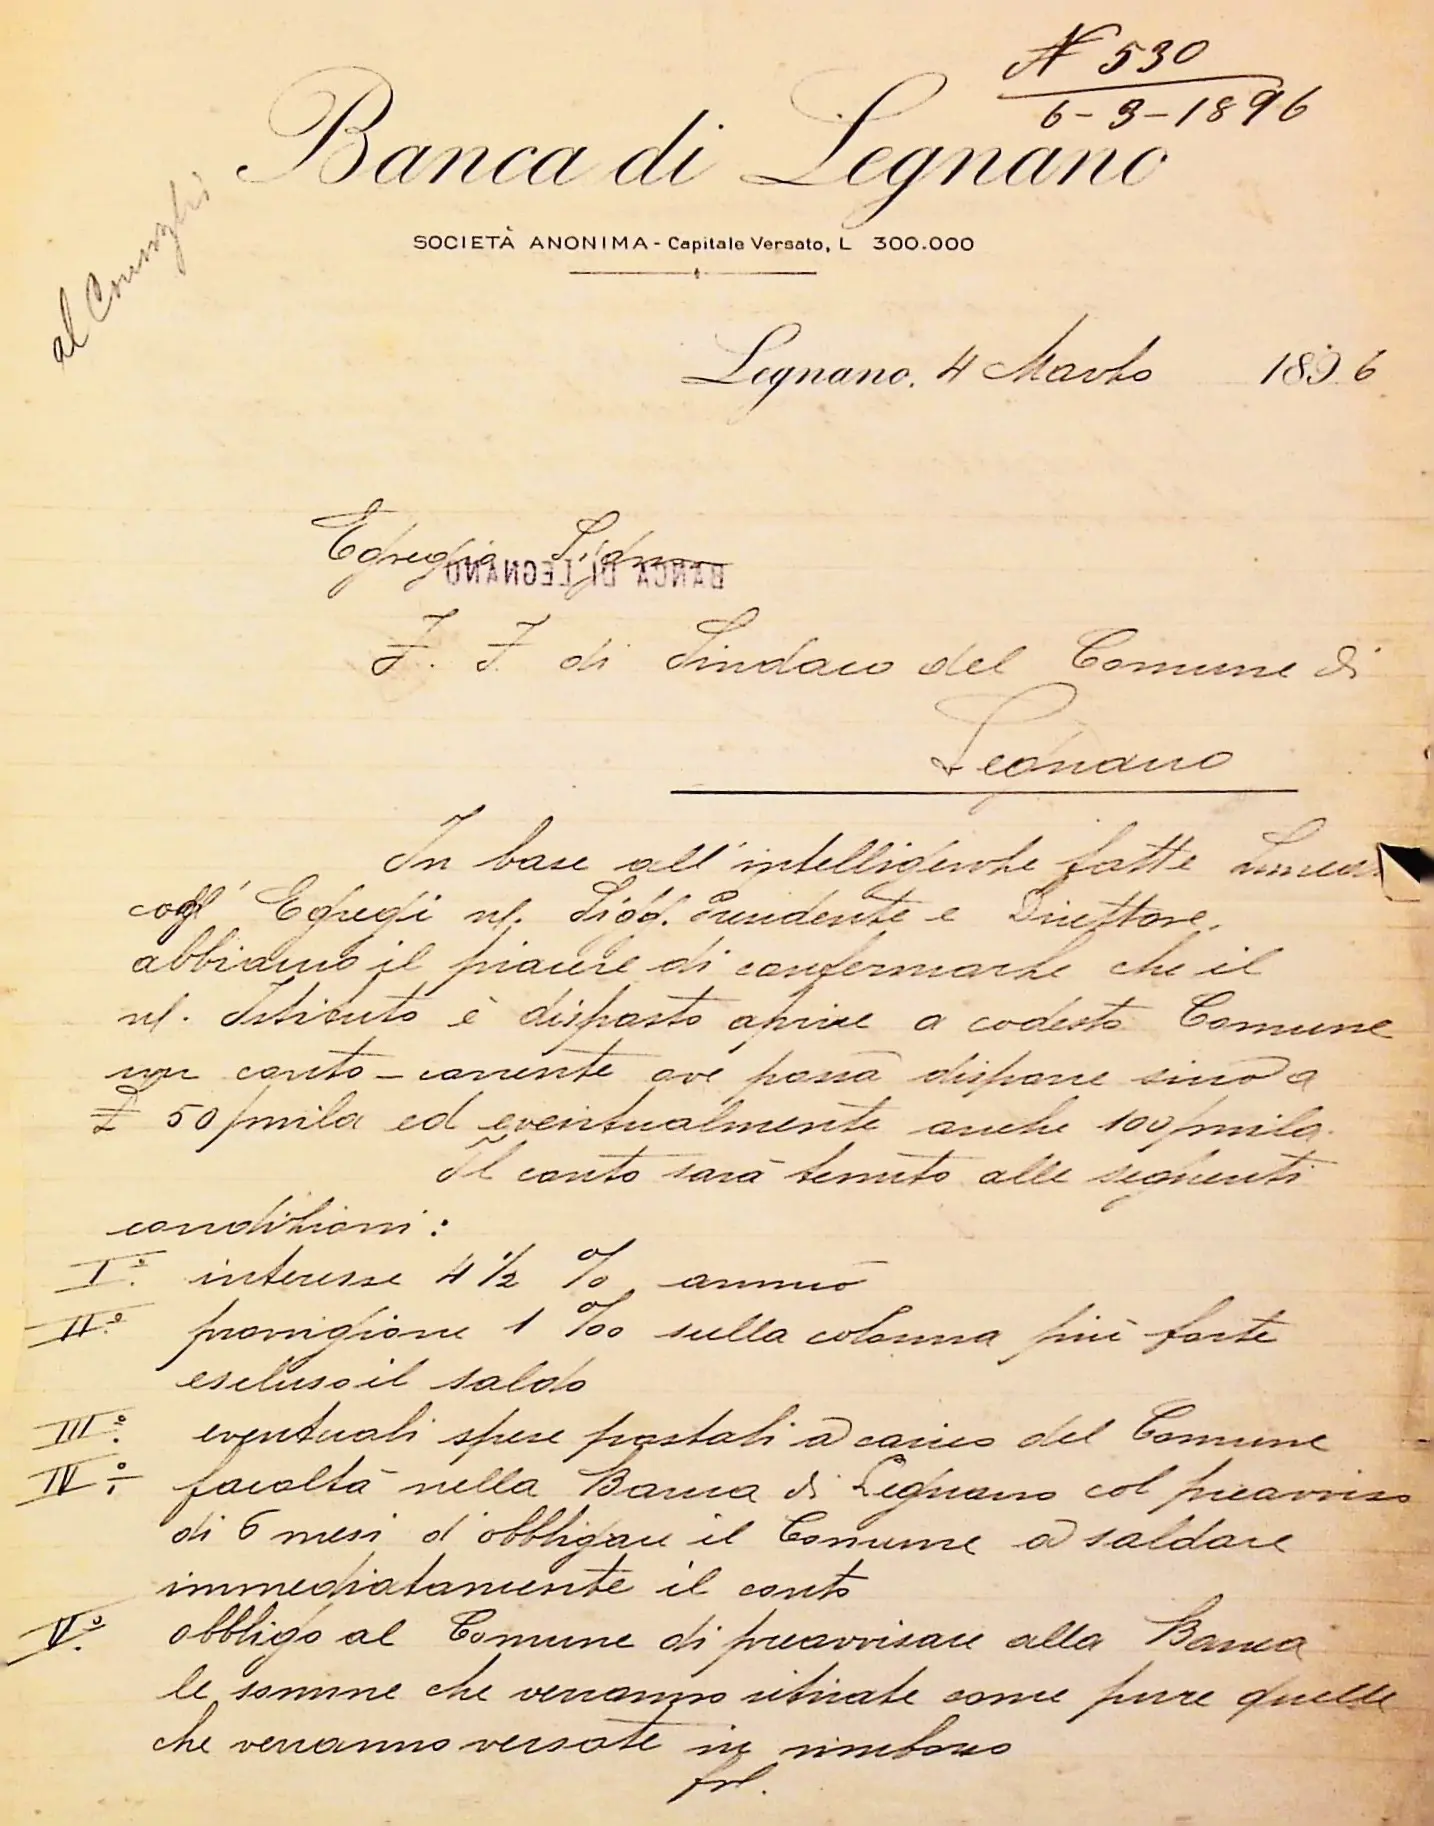 N 530
6-3-1896
Banca di Legnano
SOCIETÀ ANONIMA - Capitale Versato, L 300.000
al Consiglio
Legnano, 4 Marzo 1896
Egregio Signor
BANCA DI LEGNANO
F. F. di Sindaco del Comune di
Legnano
In base all'intelligenze fatte
cogl' Egregi ns. Sigg. Presidente e Direttore,
abbiamo il piacere di confermarle che il
ns. Istituto è disposto aprire a codesto Comune
un conto-corrente ove possa disporre sino a
£ 50/mila ed eventualmente anche 100/mila.
Il conto sarà tenuto alle seguenti
condizioni:
I.° interesse 4 1/2 % annuo
II.° provvigione 1 ‰ sulla colonna più forte
escluso il saldo
III.° eventuali spese postali a carico del Comune
IV.° facoltà nella Banca di Legnano col preavviso
di 6 mesi d'obbligare il Comune a saldare
immediatamente il conto
V.° obbligo al Comune di preavvisare alla Banca
le somme che verranno ritirate come pure quelle
che verranno versate in rimborso